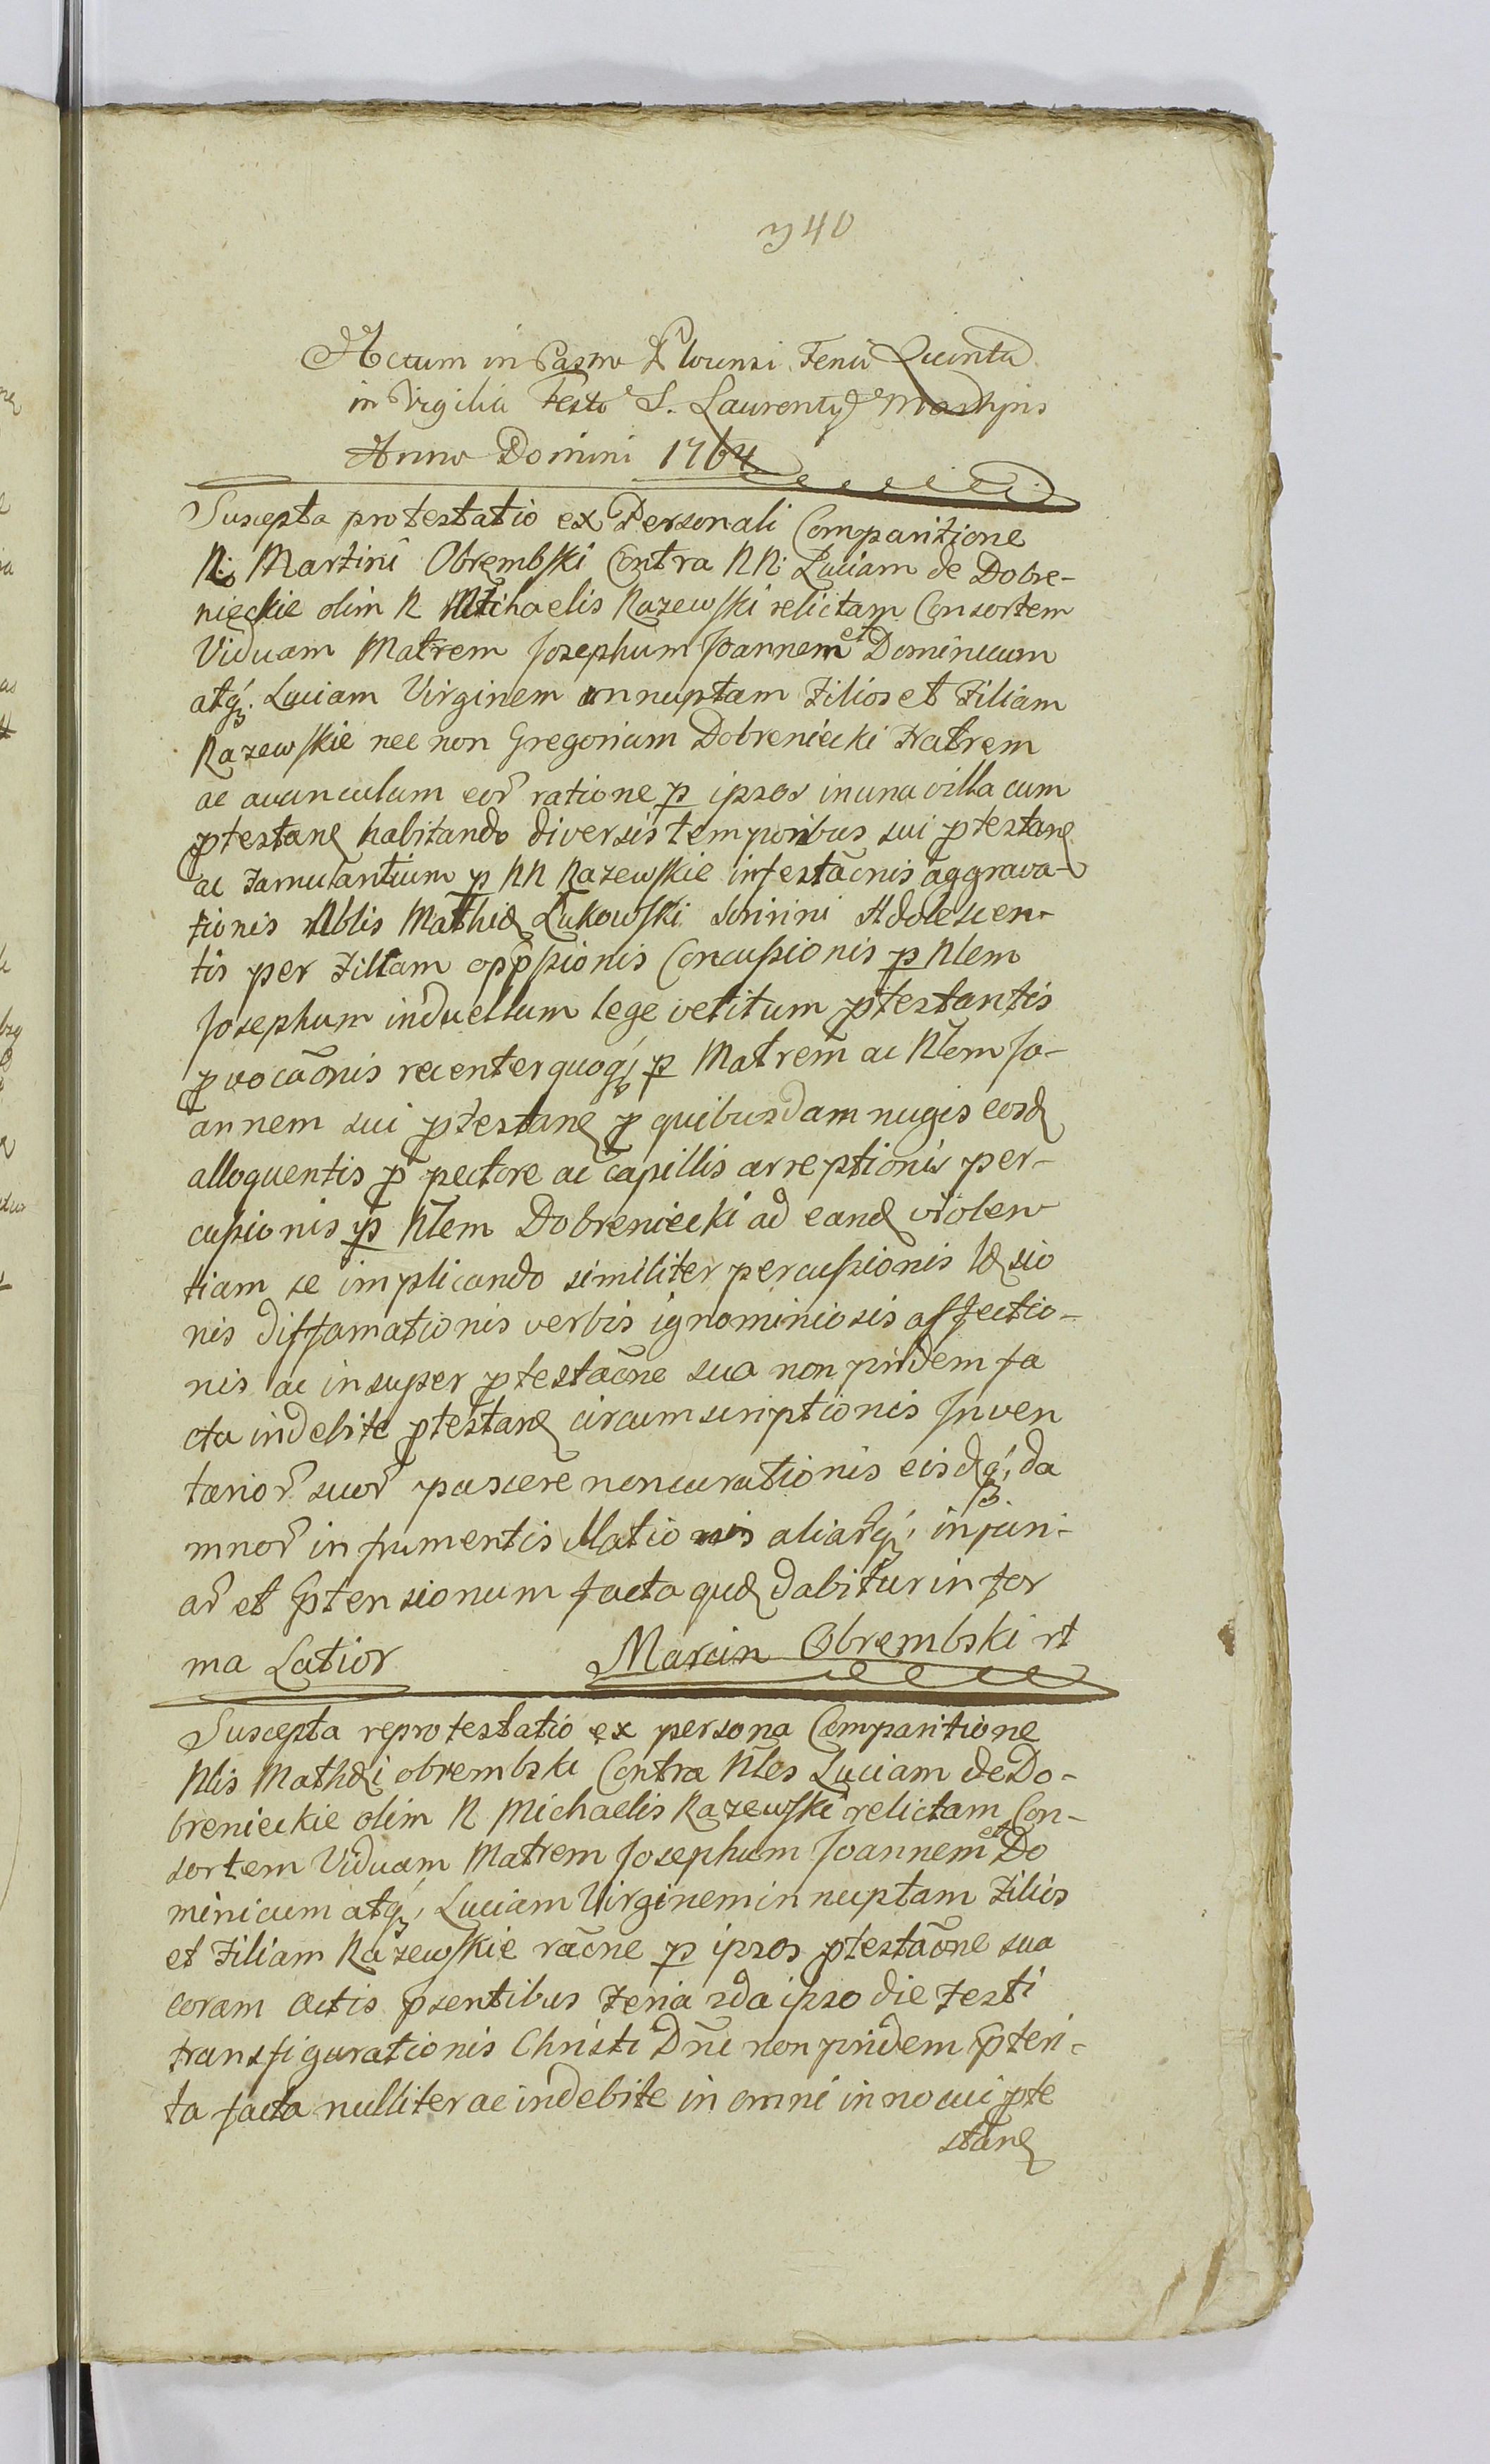 940
Actum in Castro Plocensi Feria Quinta
in Vigilia Festi S. Laurentij Martyris
Anno Domini 1764
Suscepta protestatio ex Personali Comparitione
N: Martini Obrembski Contra NN: Luciam de Dobre-
nieckie olim N Michaelis Kazewski relictam Consortem
Viduam Matrem Josephum Joannem et Dominicum
atq́ꝫ. Luciam Virginem innuptam Filios et Filiam
Kazewskie nec non Gregorium Dobreniecki Fratrem
ac avunculum eor̃ ratione ꝑ ipsos in una villa cum
ꝓtestanẹ habitando diversis temporibus sui ꝓtestanẹ
ac Famulantium ꝑ NN Kazewskie infestac̃nis aggrava-
tionis Nblis Mathiæ Lukowski Adolescen-
tis per Filiam opp̃ssionis Concussionis ꝑ Nlem
Josephum in duellum lege vetitum ꝓtestantis
ꝓvocaõnis recenter quoq́ꝫ ꝑ Matrem ac Nlem Jo-
annem sui ꝓtestanẹ ꝓ quibusdam nugis eosd̨
alloquentis ꝑ pectore ac capillis arreptionis per-
cussionis ꝑ Nlem Dobreniecki ad eand̨ violen
tiam se implicando similiter percussionis læsio
nis diffamationis verbis ignominiosis affectio-
nis ac insuper ꝓtestaõne sua non pridem fa
cta indebite ꝓtestanẹ circumscriptionis Inven
tarior̃ suor̃ pascere noncurationis eisd̨q́ꝫ, da
mnor̃ in frumentis illationis aliar̃q́ꝫ, injuri-
ar̃ et p̃tensionum facta quæ dabitur in for
ma Latior Marcin Obrembski rt
Suscepta reprotestatio ex persona Comparitione
Nlis Mathæi obrembski Contra Nles Luciam de Do-
brenieckie olim N Michaelis Kazewski relictam Con-
sortem Viduam Matrem Josephum Joannem et Do
minicum atq́ꝫ, Luciam Virginem innuptam Filios
et Filiam Kazewskie raõne ꝑ ipsos ꝓtestaõne sua
coram actis p̃sentibus Feria 2da ipso die Festi
transfigurationis Christi Dñi non pridem p̃teri-
ta facta nulliter ac indebite in omni innocui ꝓte
stanẹ